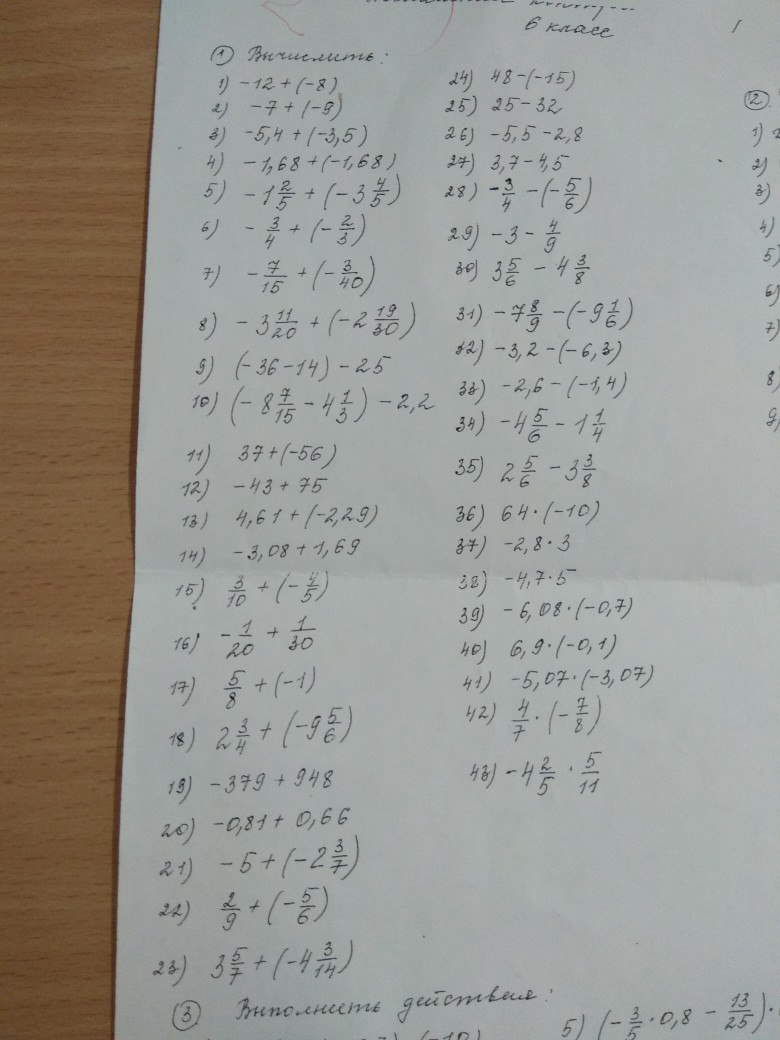 6 класс
1 Вычислить:
1) -12 + (-8)
2) -7 + (-9)
3) -5,4 + (-3,5)
4) -1,68 + (-1,68)
5) -1 2/5 + (-3 4/5)
6) -3/4 + (-2/3)
7) -7/15 + (-3/40)
8) -3 11/20 + (-2 19/30)
9) (-36 - 14) - 25
10) (-8 7/15 - 4 1/3) - 2,2
11) 37 + (-56)
12) -43 + 75
13) 4,61 + (-2,29)
14) -3,08 + 1,69
15) 3/10 + (-4/5)
16) -1/20 + 1/30
17) 5/8 + (-1)
18) 2 3/4 + (-9 5/6)
19) -379 + 948
20) -0,81 + 0,66
21) -5 + (-2 3/7)
22) 2/9 + (-5/6)
23) 3 5/7 + (-4 3/14)
24) 48 - (-15)
25) 25 - 32
26) -5,5 - 2,8
27) 3,7 - 4,5
28) -3/4 - (-5/6)
29) -3 - 4/9
30) 3 5/6 - 4 3/8
31) -7 8/9 - (-9 1/6)
32) -3,2 - (-6,3)
33) -2,6 - (-1,4)
34) -4 5/6 - 1 1/4
35) 2 5/6 - 3 3/8
36) 64 · (-10)
37) -2,8 · 3
38) -4,7 · 5
39) -6,08 · (-0,7)
40) 6,9 · (-0,1)
41) -5,07 · (-3,07)
42) 4/7 · (-7/8)
43) -4 2/5 · 5/11
2
1)
2)
3)
4)
5)
6)
7)
8)
9)
3 Выполнить действия:
5) (-3/5 · 0,8 - 13/25) ·